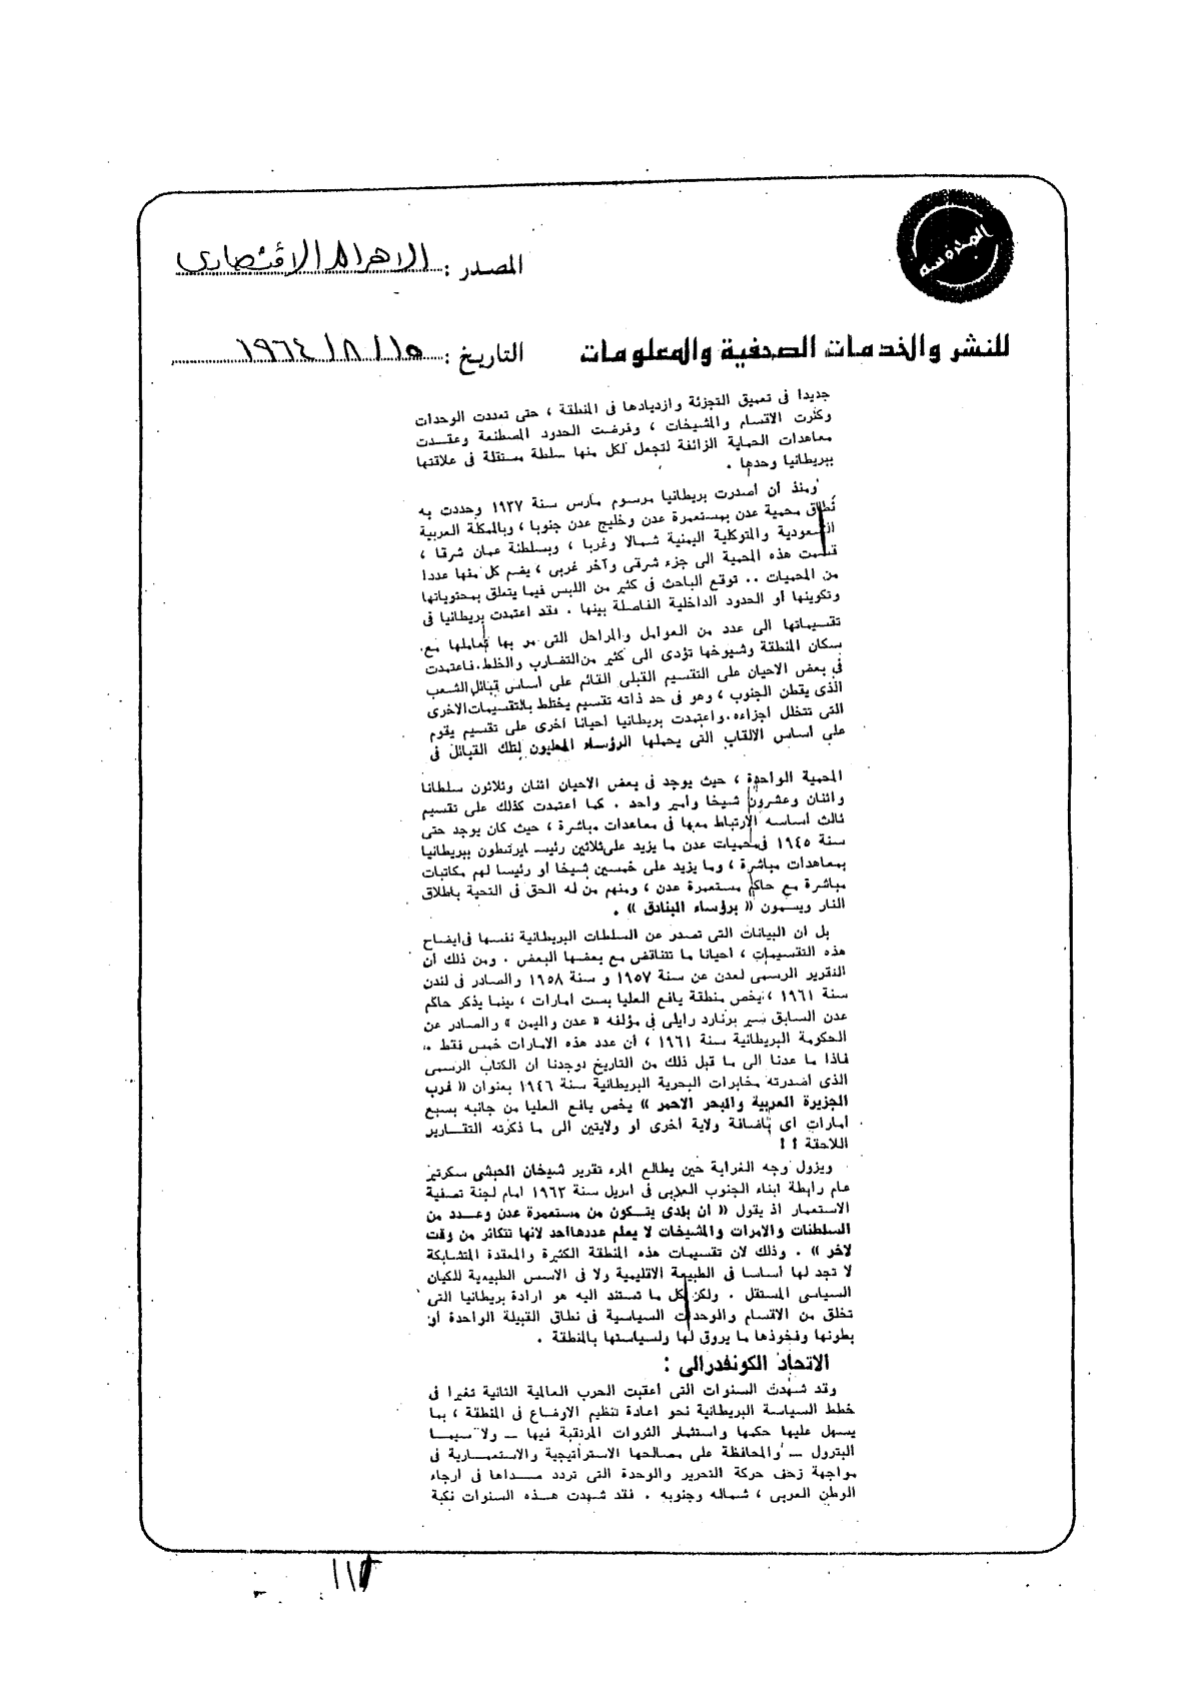 المحروسة
المصدر : الاهرام الاقتصادى
للنشر والخدمات الصحفية والمعلومات
التاريخ : ١٥ / ٨ / ١٩٦٤
جديدا فى تعميق التجزئة وازديادها فى المنطقة ، حتى تعددت الوحدات
وكثرت الاقسام والمشيخات ، وفرضت الحدود المصطنعة وعقدت
معاهدات الحماية الزائفة لتجعل لكل منها سلطة مستقلة فى علاقتها
ببريطانيا وحدها .
ومنذ أن أصدرت بريطانيا مرسوم مارس سنة ١٩٣٧ وحددت به
نطاق محمية عدن بمستعمرة عدن وخليج عدن جنوبا ، وبالمملكة العربية
السعودية والمتوكلية اليمنية شمالا وغربا ، وبسلطنة عمان شرقا ،
قسمت هذه المحمية الى جزء شرقى وآخر غربى ، يضم كل منها عددا
من المحميات .. توقع الباحث فى كثير من اللبس فيما يتعلق بمحتوياتها
وتكوينها أو الحدود الداخلية الفاصلة بينها . فقد اعتمدت بريطانيا فى
تقسيماتها الى عدد من العوامل والمراحل التى مر بها تعاملها مع
سكان المنطقة وشيوخها تؤدى الى كثير من التضارب والخلط . فاعتمدت
فى بعض الاحيان على التقسيم القبلى القائم على أساس قبائل الشعب
الذى يقطن الجنوب ، وهو فى حد ذاته تقسيم يختلط بالتقسيمات الاخرى
التى تتخلل اجزاءه . واعتمدت بريطانيا أحيانا أخرى على تقسيم يقوم
على أساس الالقاب التى يحملها الرؤساء المحليون لتلك القبائل فى
المحمية الواحدة ، حيث يوجد فى بعض الاحيان اثنان وثلاثون سلطانا
واثنان وعشرون شيخا وأمير واحد . كما اعتمدت كذلك على تقسيم
ثالث أساسه الارتباط معها فى معاهدات مباشرة ، حيث كان يوجد حتى
سنة ١٩٤٥ فى محميات عدن ما يزيد على ثلاثين رئيسا يرتبطون ببريطانيا
بمعاهدات مباشرة ، وما يزيد على خمسين شيخا أو رئيسا لهم مكاتبات
مباشرة مع حاكم مستعمرة عدن ، ومنهم من له الحق فى التحية باطلاق
النار ويسمون « برؤساء البنادق » .
بل ان البيانات التى تصدر عن السلطات البريطانية نفسها فى ايضاح
هذه التقسيمات ، أحيانا ما تتناقض مع بعضها البعض . ومن ذلك أن
التقرير الرسمى لعدن عن سنة ١٩٥٧ و سنة ١٩٥٨ والصادر فى لندن
سنة ١٩٦١ ، يخص منطقة يافع العليا بست امارات ، بينما يذكر حاكم
عدن السابق سير برنارد رايلى فى مؤلفه « عدن واليمن » والصادر عن
الحكومة البريطانية سنة ١٩٦١ ، أن عدد هذه الامارات خمس فقط ..
فاذا ما عدنا الى ما قبل ذلك من التاريخ لوجدنا أن الكتاب الرسمى
الذى أصدرته مخابرات البحرية البريطانية سنة ١٩٤٦ بعنوان « غرب
الجزيرة العربية والبحر الاحمر » يخص يافع العليا من جانبه بسبع
امارات أى باضافة ولاية أخرى أو ولايتين الى ما ذكرته التقارير
اللاحقة !!
ويزول وجه الغرابة حين يطالع المرء تقرير شيخان الحبشى سكرتير
عام رابطة أبناء الجنوب العربى فى ابريل سنة ١٩٦٣ امام لجنة تصفية
الاستعمار اذ يقول « ان بلدى يتكون من مستعمرة عدن وعدد من
السلطنات والامرات والمشيخات لا يعلم عددها أحد لانها تتكاثر من وقت
لاخر » . وذلك لان تقسيمات هذه المنطقة الكثيرة والمعقدة المتشابكة
لا تجد لها أساسا فى الطبيعة الاقليمية ولا فى الاسس الطبيعية للكيان
السياسى المستقل . ولكن كل ما تستند اليه هو ارادة بريطانيا التى
تخلق من الاقسام والوحدات السياسية فى نطاق القبيلة الواحدة أو
بطونها وفخوذها ما يروق لها ولسياستها بالمنطقة .
الاتحاد الكونفدرالى :
وقد شهدت السنوات التى أعقبت الحرب العالمية الثانية تغيرا فى
خطط السياسة البريطانية نحو اعادة تنظيم الاوضاع فى المنطقة ، بما
يسهل عليها حكمها واستثمار الثروات المرتقبة فيها — ولا سيما
البترول — والمحافظة على مصالحها الاستراتيجية والاستعمارية فى
مواجهة زحف حركة التحرير والوحدة التى تردد صداها فى ارجاء
الوطن العربى ، شماله وجنوبه . فقد شهدت هذه السنوات نكبة